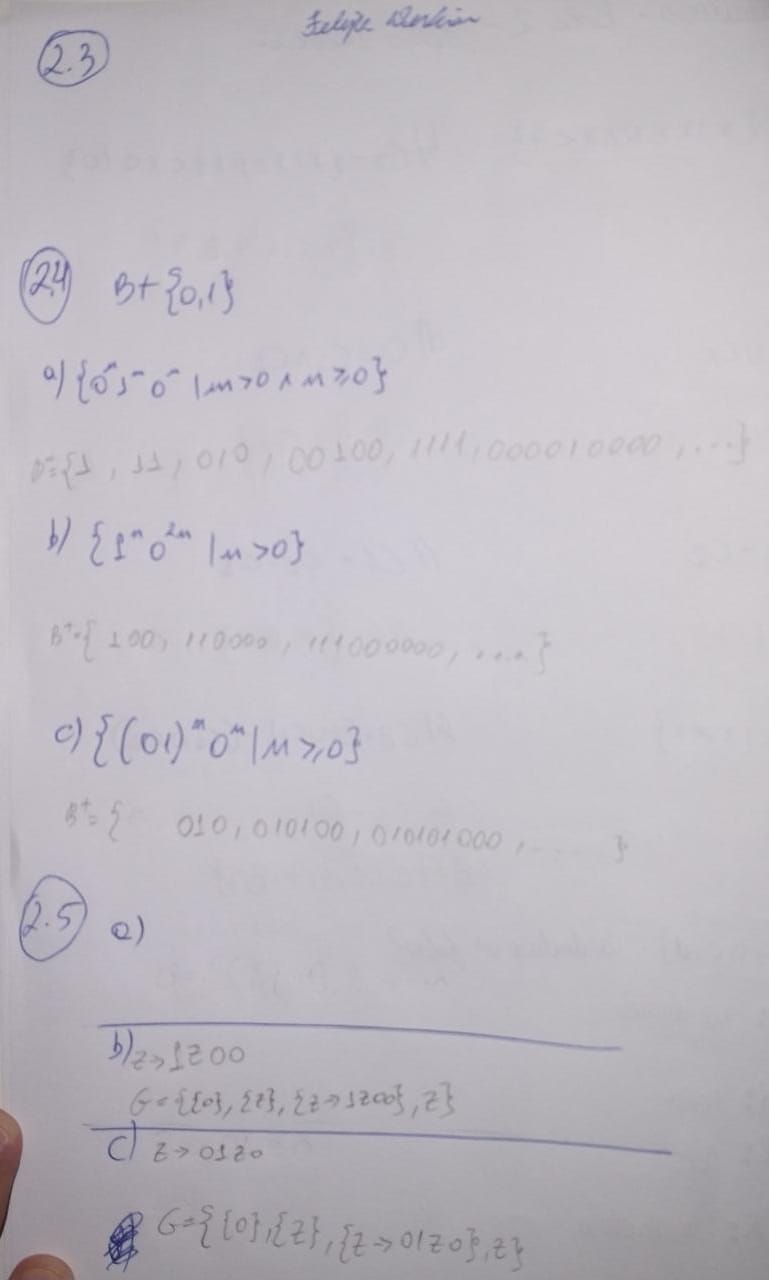 Felipe
2.3
2.4 B+ {0,1}
a) {0ⁿ 1ᵐ 0ⁿ | m>0 ∧ n≥0}
B⁺={1, 11, 010, 00100, 1111, 000010000, ...}
b) {1ⁿ 0²ⁿ | n>0}
B⁺={100, 110000, 111000000, ....}
c) {(01)ⁿ 0ⁿ | n≥0}
B⁺={ 010, 010100, 010101000, ...... }
2.5 a)
b) z→1z00
G={{0}, {z}, {z→1z00}, z}
c) z→01z0
G={{0},{z},{z→01z0},z}